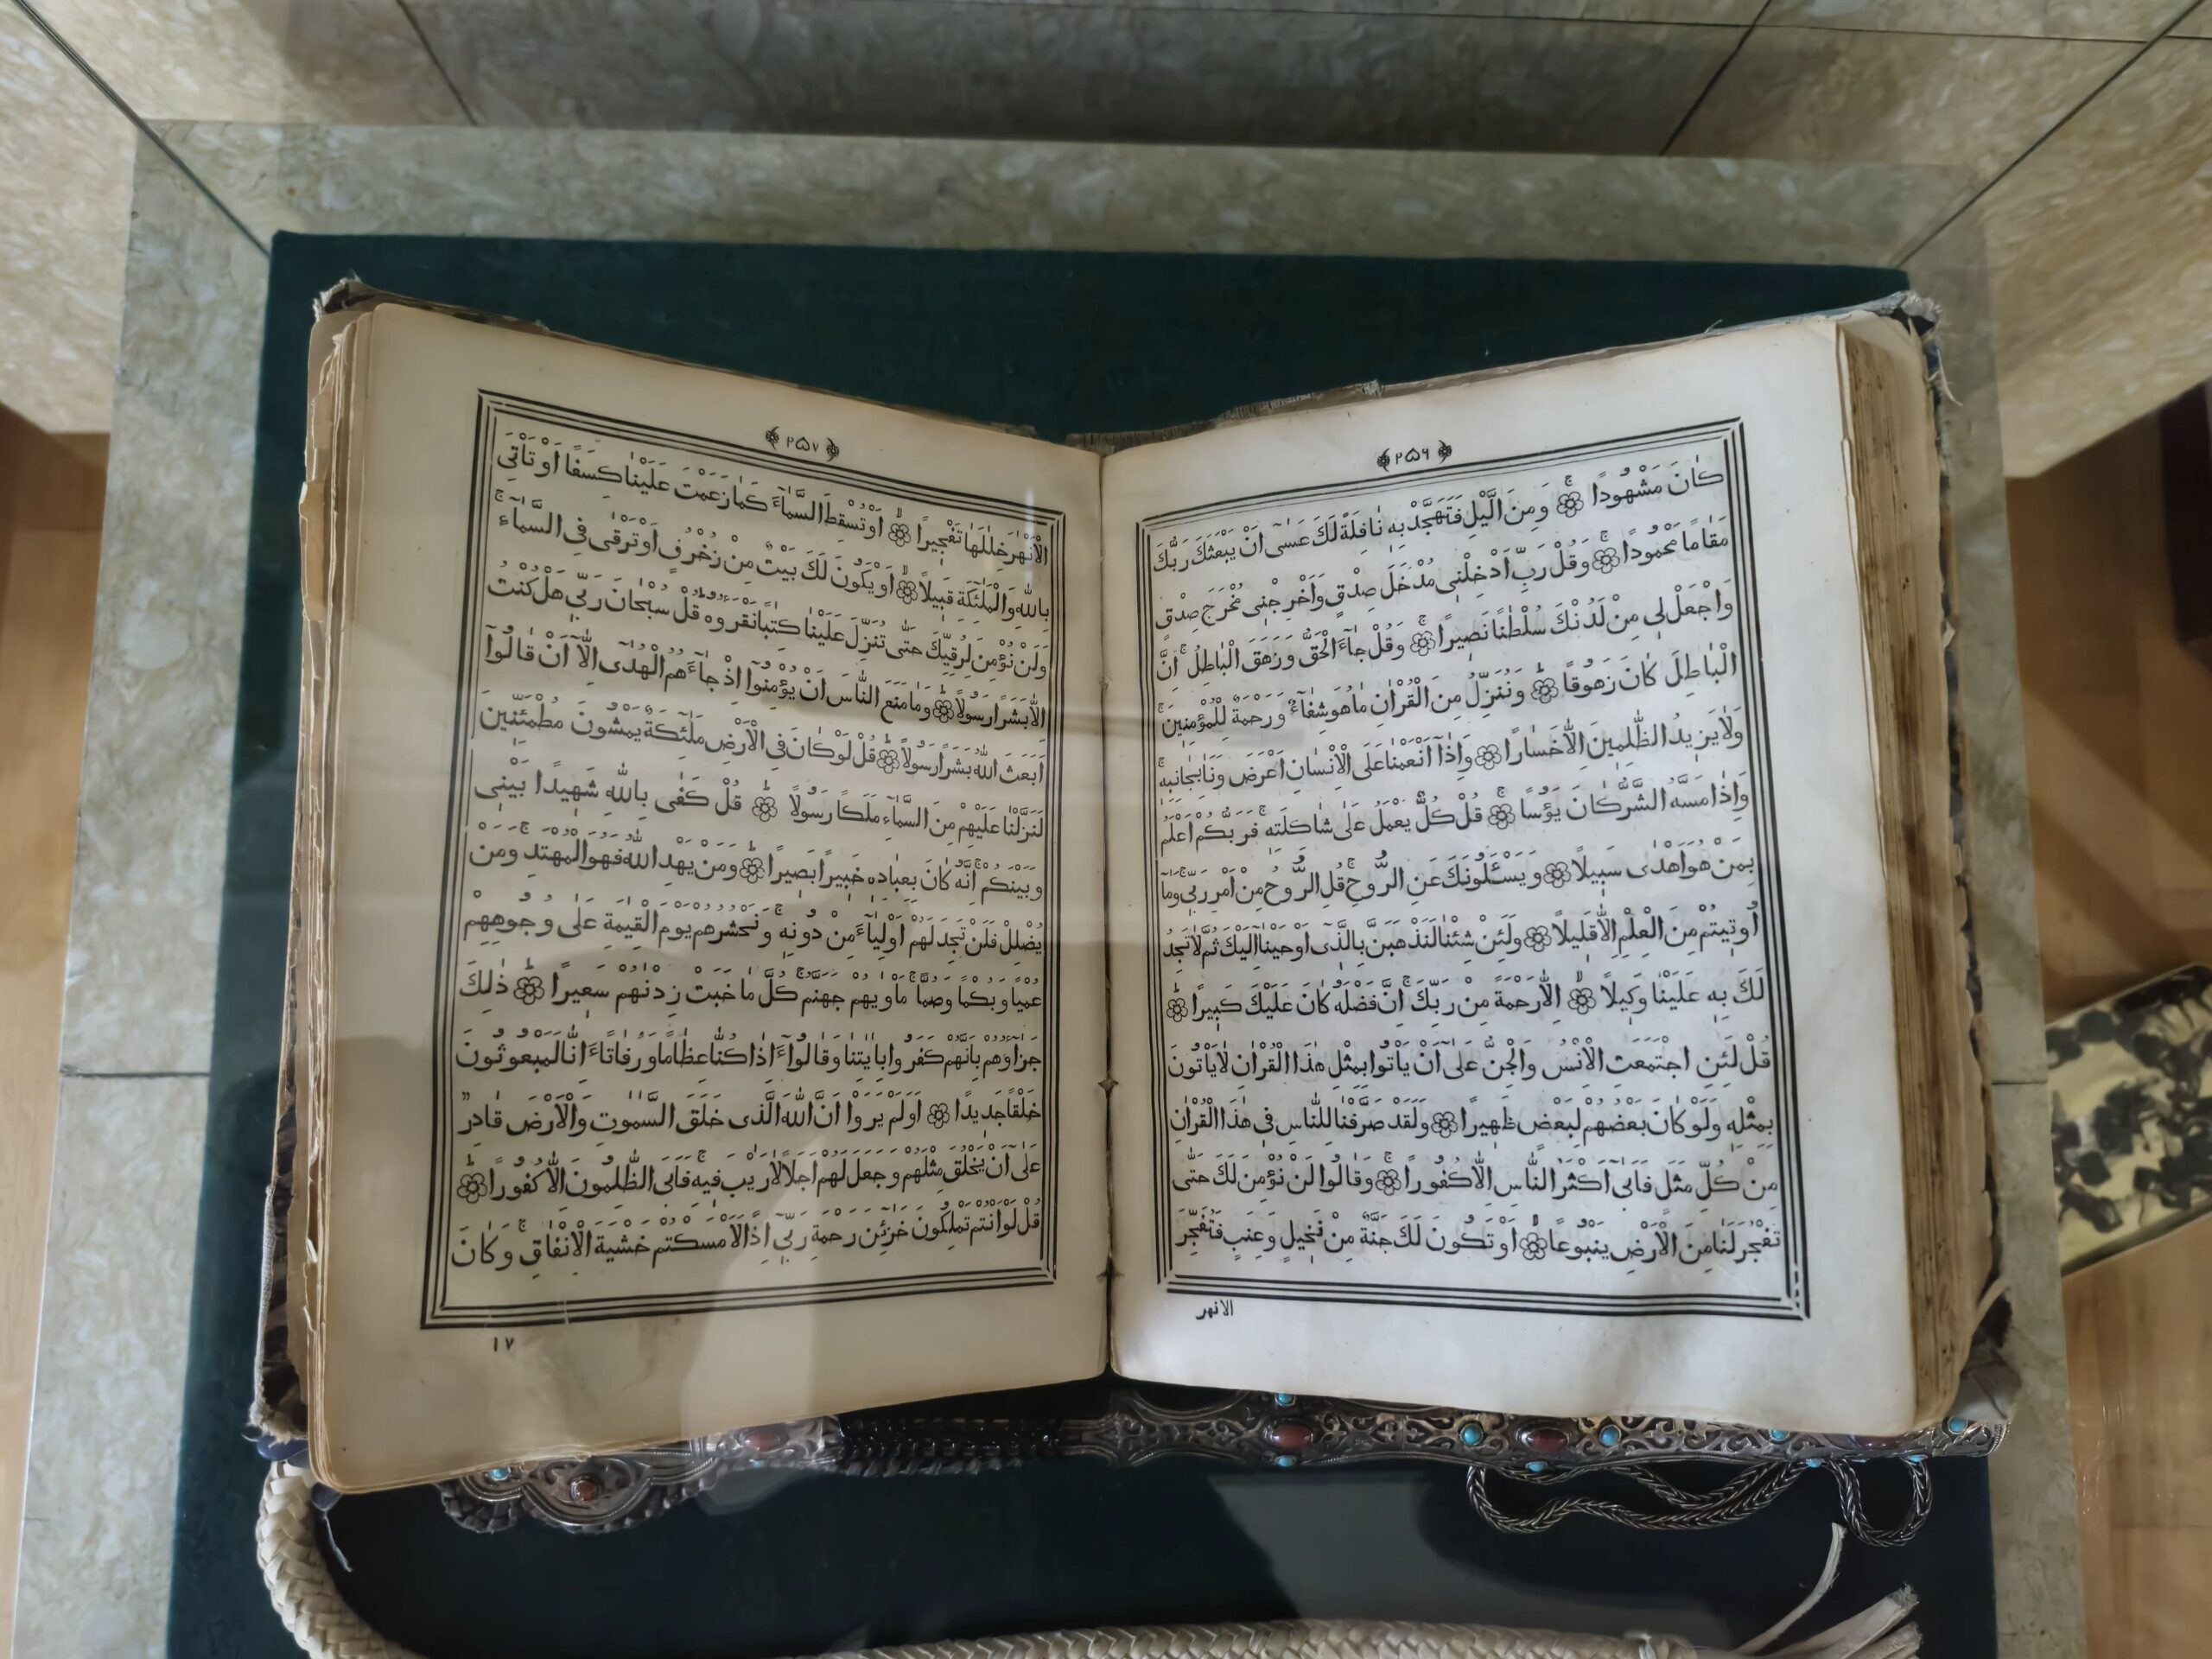 ﴿٢٥٦﴾
كَانَ مَشْهُودًا ۞ وَمِنَ الَّيْلِ فَتَهَجَّدْ بِهٖ نَافِلَةً لَكَ عَسٰٓى اَنْ يَبْعَثَكَ رَبُّكَ
مَقَامًا مَحْمُودًا ۞ وَقُلْ رَبِّ اَدْخِلْنِى مُدْخَلَ صِدْقٍ وَاَخْرِجْنِى مُخْرَجَ صِدْقٍ
وَاجْعَلْ لِى مِنْ لَدُنْكَ سُلْطٰنًا نَصِيرًا ۞ وَقُلْ جَآءَ الْحَقُّ وَزَهَقَ الْبَاطِلُ اِنَّ
الْبَاطِلَ كَانَ زَهُوقًا ۞ وَنُنَزِّلُ مِنَ الْقُرْاٰنِ مَا هُوَ شِفَآءٌ وَرَحْمَةٌ لِلْمُؤْمِنِينَ
وَلَا يَزِيدُ الظّٰلِمِينَ اِلَّا خَسَارًا ۞ وَاِذَآ اَنْعَمْنَا عَلَى الْاِنْسَانِ اَعْرَضَ وَنَاٰ بِجَانِبِهٖ
وَاِذَا مَسَّهُ الشَّرُّ كَانَ يَؤُسًا ۞ قُلْ كُلٌّ يَعْمَلُ عَلٰى شَاكِلَتِهٖ فَرَبُّكُمْ اَعْلَمُ
بِمَنْ هُوَ اَهْدٰى سَبِيلًا ۞ وَيَسْـَٔلُونَكَ عَنِ الرُّوحِ قُلِ الرُّوحُ مِنْ اَمْرِ رَبِّى وَمَآ
اُوتِيتُمْ مِنَ الْعِلْمِ اِلَّا قَلِيلًا ۞ وَلَئِنْ شِئْنَا لَنَذْهَبَنَّ بِالَّذِٓى اَوْحَيْنَآ اِلَيْكَ ثُمَّ لَا تَجِدُ
لَكَ بِهٖ عَلَيْنَا وَكِيلًا ۞ اِلَّا رَحْمَةً مِنْ رَبِّكَ اِنَّ فَضْلَهُ كَانَ عَلَيْكَ كَبِيرًا ۞
قُلْ لَئِنِ اجْتَمَعَتِ الْاِنْسُ وَالْجِنُّ عَلٰٓى اَنْ يَاْتُوا بِمِثْلِ هٰذَا الْقُرْاٰنِ لَا يَاْتُونَ
بِمِثْلِهٖ وَلَوْ كَانَ بَعْضُهُمْ لِبَعْضٍ ظَهِيرًا ۞ وَلَقَدْ صَرَّفْنَا لِلنَّاسِ فِى هٰذَا الْقُرْاٰنِ
مِنْ كُلِّ مَثَلٍ فَاَبٰٓى اَكْثَرُ النَّاسِ اِلَّا كُفُورًا ۞ وَقَالُوا لَنْ نُؤْمِنَ لَكَ حَتّٰى
تَفْجُرَ لَنَا مِنَ الْاَرْضِ يَنْبُوعًا ۞ اَوْ تَكُونَ لَكَ جَنَّةٌ مِنْ نَخِيلٍ وَعِنَبٍ فَتُفَجِّرَ
الانهر
﴿٢٥٧﴾
الْاَنْهٰرَ خِلٰلَهَا تَفْجِيرًا ۞ اَوْ تُسْقِطَ السَّمَآءَ كَمَا زَعَمْتَ عَلَيْنَا كِسَفًا اَوْ تَاْتِىَ
بِاللّٰهِ وَالْمَلٰٓئِكَةِ قَبِيلًا ۞ اَوْ يَكُونَ لَكَ بَيْتٌ مِنْ زُخْرُفٍ اَوْ تَرْقٰى فِى السَّمَآءِ
وَلَنْ نُؤْمِنَ لِرُقِيِّكَ حَتّٰى تُنَزِّلَ عَلَيْنَا كِتٰبًا نَقْرَؤُهُ قُلْ سُبْحَانَ رَبِّى هَلْ كُنْتُ
اِلَّا بَشَرًا رَسُولًا ۞ وَمَا مَنَعَ النَّاسَ اَنْ يُؤْمِنُوٓا اِذْ جَآءَهُمُ الْهُدٰٓى اِلَّآ اَنْ قَالُوٓا
اَبَعَثَ اللّٰهُ بَشَرًا رَسُولًا ۞ قُلْ لَوْ كَانَ فِى الْاَرْضِ مَلٰٓئِكَةٌ يَمْشُونَ مُطْمَئِنِّينَ
لَنَزَّلْنَا عَلَيْهِمْ مِنَ السَّمَآءِ مَلَكًا رَسُولًا ۞ قُلْ كَفٰى بِاللّٰهِ شَهِيدًا بَيْنِى
وَبَيْنَكُمْ اِنَّهُ كَانَ بِعِبَادِهٖ خَبِيرًا بَصِيرًا ۞ وَمَنْ يَهْدِ اللّٰهُ فَهُوَ الْمُهْتَدِ وَمَنْ
يُضْلِلْ فَلَنْ تَجِدَ لَهُمْ اَوْلِيَآءَ مِنْ دُونِهٖ وَنَحْشُرُهُمْ يَوْمَ الْقِيٰمَةِ عَلٰى وُجُوهِهِمْ
عُمْيًا وَبُكْمًا وَصُمًّا مَاْوٰيهُمْ جَهَنَّمُ كُلَّمَا خَبَتْ زِدْنٰهُمْ سَعِيرًا ۞ ذٰلِكَ
جَزَآؤُهُمْ بِاَنَّهُمْ كَفَرُوا بِاٰيٰتِنَا وَقَالُوٓا ءَاِذَا كُنَّا عِظَامًا وَرُفَاتًا ءَاِنَّا لَمَبْعُوثُونَ
خَلْقًا جَدِيدًا ۞ اَوَلَمْ يَرَوْا اَنَّ اللّٰهَ الَّذِى خَلَقَ السَّمٰوٰتِ وَالْاَرْضَ قَادِرٌ
عَلٰٓى اَنْ يَخْلُقَ مِثْلَهُمْ وَجَعَلَ لَهُمْ اَجَلًا لَا رَيْبَ فِيهِ فَاَبَى الظّٰلِمُونَ اِلَّا كُفُورًا ۞
قُلْ لَوْ اَنْتُمْ تَمْلِكُونَ خَزَآئِنَ رَحْمَةِ رَبِّٓى اِذًا لَاَمْسَكْتُمْ خَشْيَةَ الْاِنْفَاقِ وَكَانَ
١٧